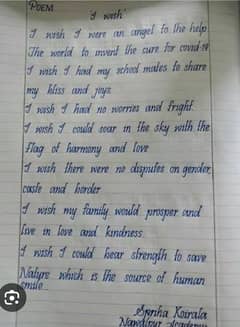 POEM
'I wish'
I wish I were an angel to the help
The world to invent the cure for covid-19
I wish I had my school mates to share
my bliss and joys
I wish I had no worries and fright.
I wish I could soar in the sky with the
flag of harmony and love
I wish there were no disputes on gender,
caste and border
I wish my family would prosper and
live in love and kindness.
I wish I could bear strength to save
Nature which is the source of human
smile
Koirala